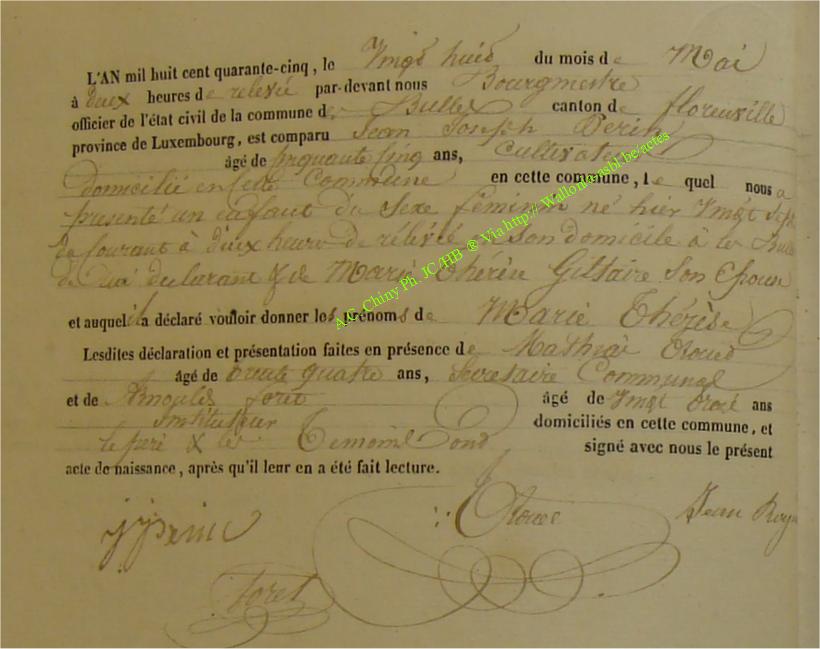 L'AN mil huit cent quarante-cinq, le Vingt huit du mois de Mai
à deux heures de relevée par-devant nous Bourgmestre
officier de l'état civil de la commune de Bulles canton de florenville
province de Luxembourg, est comparu Jean Joseph Perin
âgé de cinquante cinq ans, Cultivateur
domicilié en cette Commune en cette commune, le quel nous a
présenté un enfant du sexe féminin né hier Vingt sept
du courant à deux heures de relevée son domicile à
de lui déclarant & de Marie Thérèse Gillaire son Epouse
et auquel il a déclaré vouloir donner les prénoms de Marie Thérèse
Lesdites déclaration et présentation faites en présence de Mathias
âgé de trente quatre ans, Secrétaire Communal
et de foret âgé de Vingt trois ans
Instituteur domiciliés en cette commune, et
le père & les Temoins Sont signé avec nous le présent
acte de naissance, après qu'il leur en a été fait lecture.
Jean
foret
Arc. Chiny Ph. JC/HB ® Via http://Wallonia-asbl.be/actes